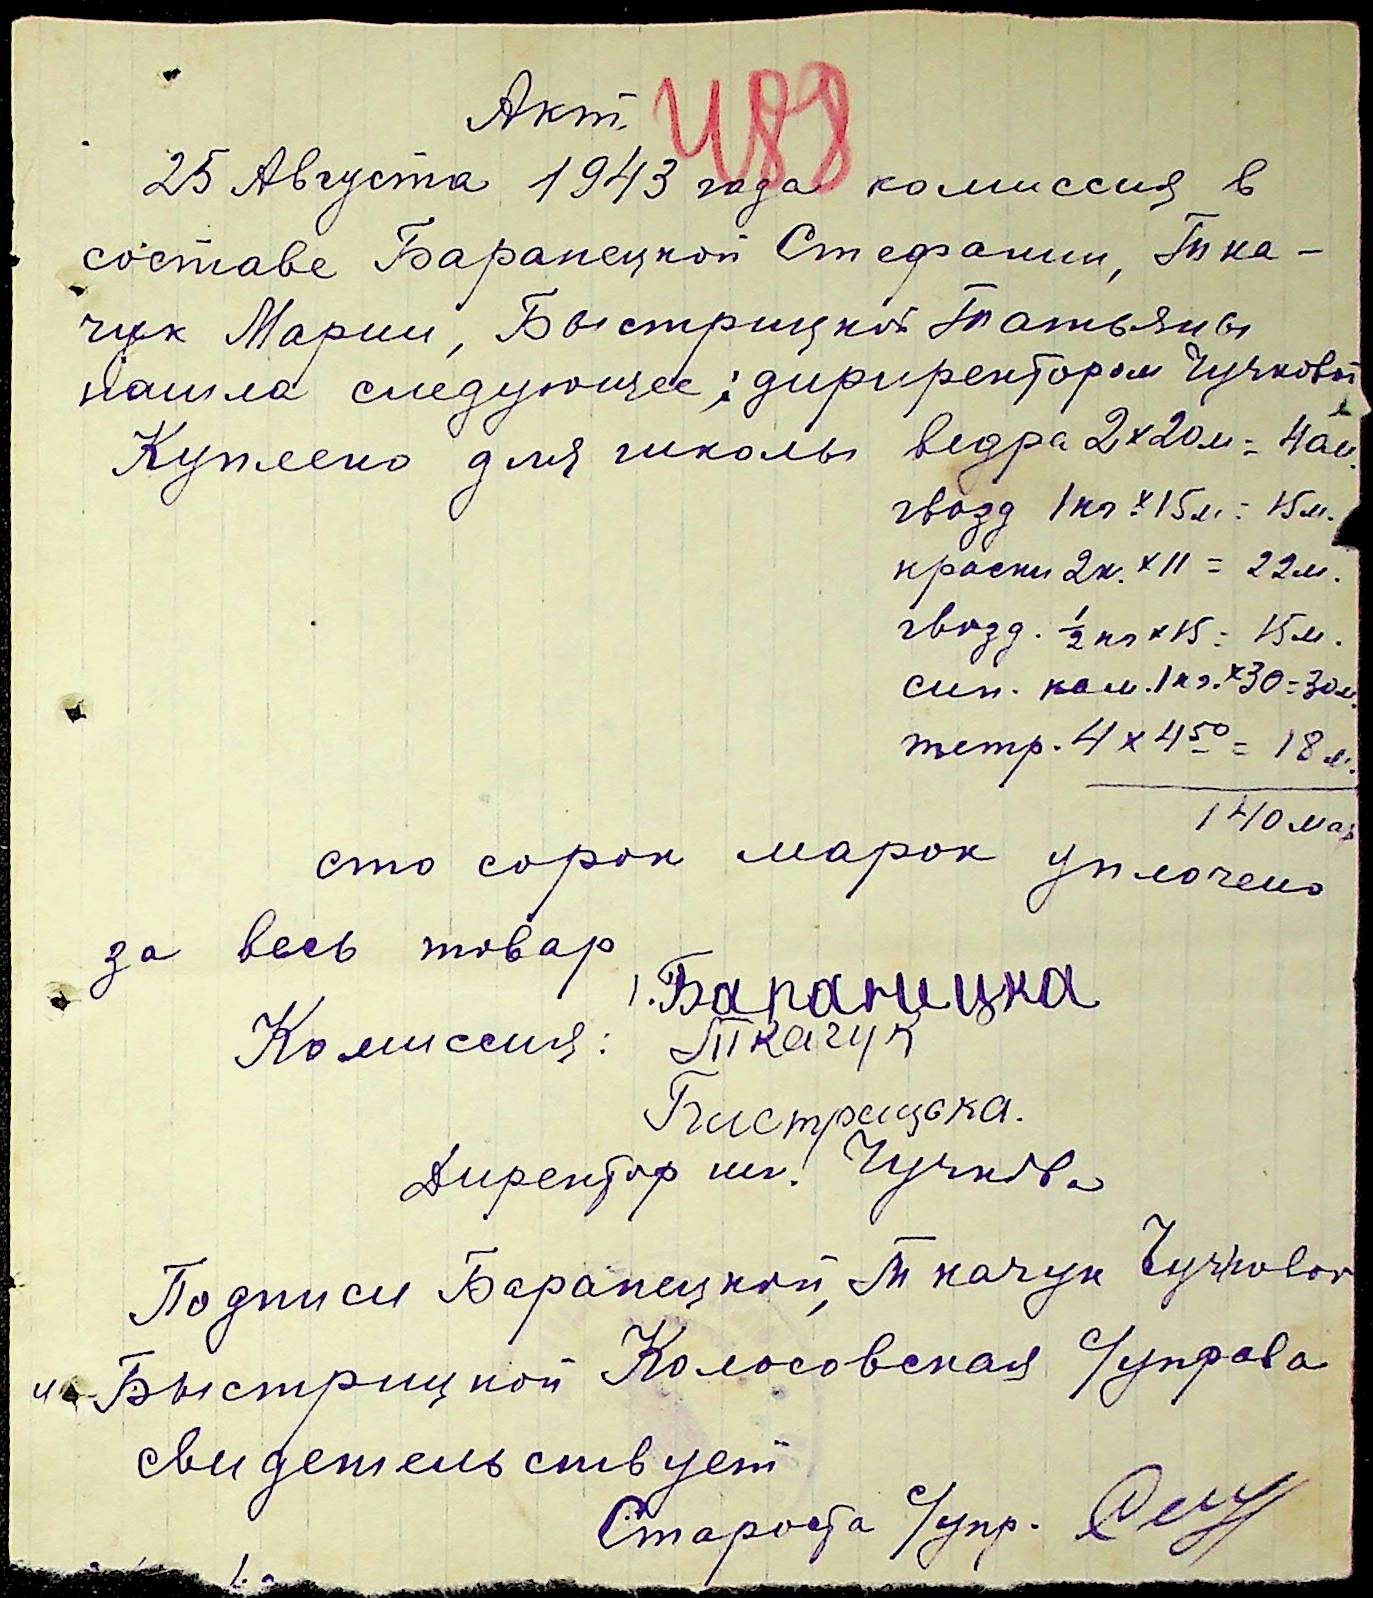 Акт. 488
25 Августа 1943 года комиссия в
составе Барапецкой Стефании, Тка-
чук Марии, Быстрицкой Татьяны
нашла следующее; дириректором Чучковой
Куплено для школы ведра 2×20м = 40м.
гвозд 1кг × 15м = 15м.
краски 2к. × 11 = 22м.
гвозд. ½ кг × 15 = 15м.
син. кам. 1кг. × 30 = 30м.
тетр. 4 × 4 50 = 18м.
140 мар
сто сорок марок уплочено
за весь товар
1. Барапецка
Комиссия: Ткачук
Бистрицька.
Директор шк. Чучкова
Подписи Барапецкой, Ткачук Чучковой
и Быстрицкой Колосовская с/управа
свидетельствует
Староста с/упр.